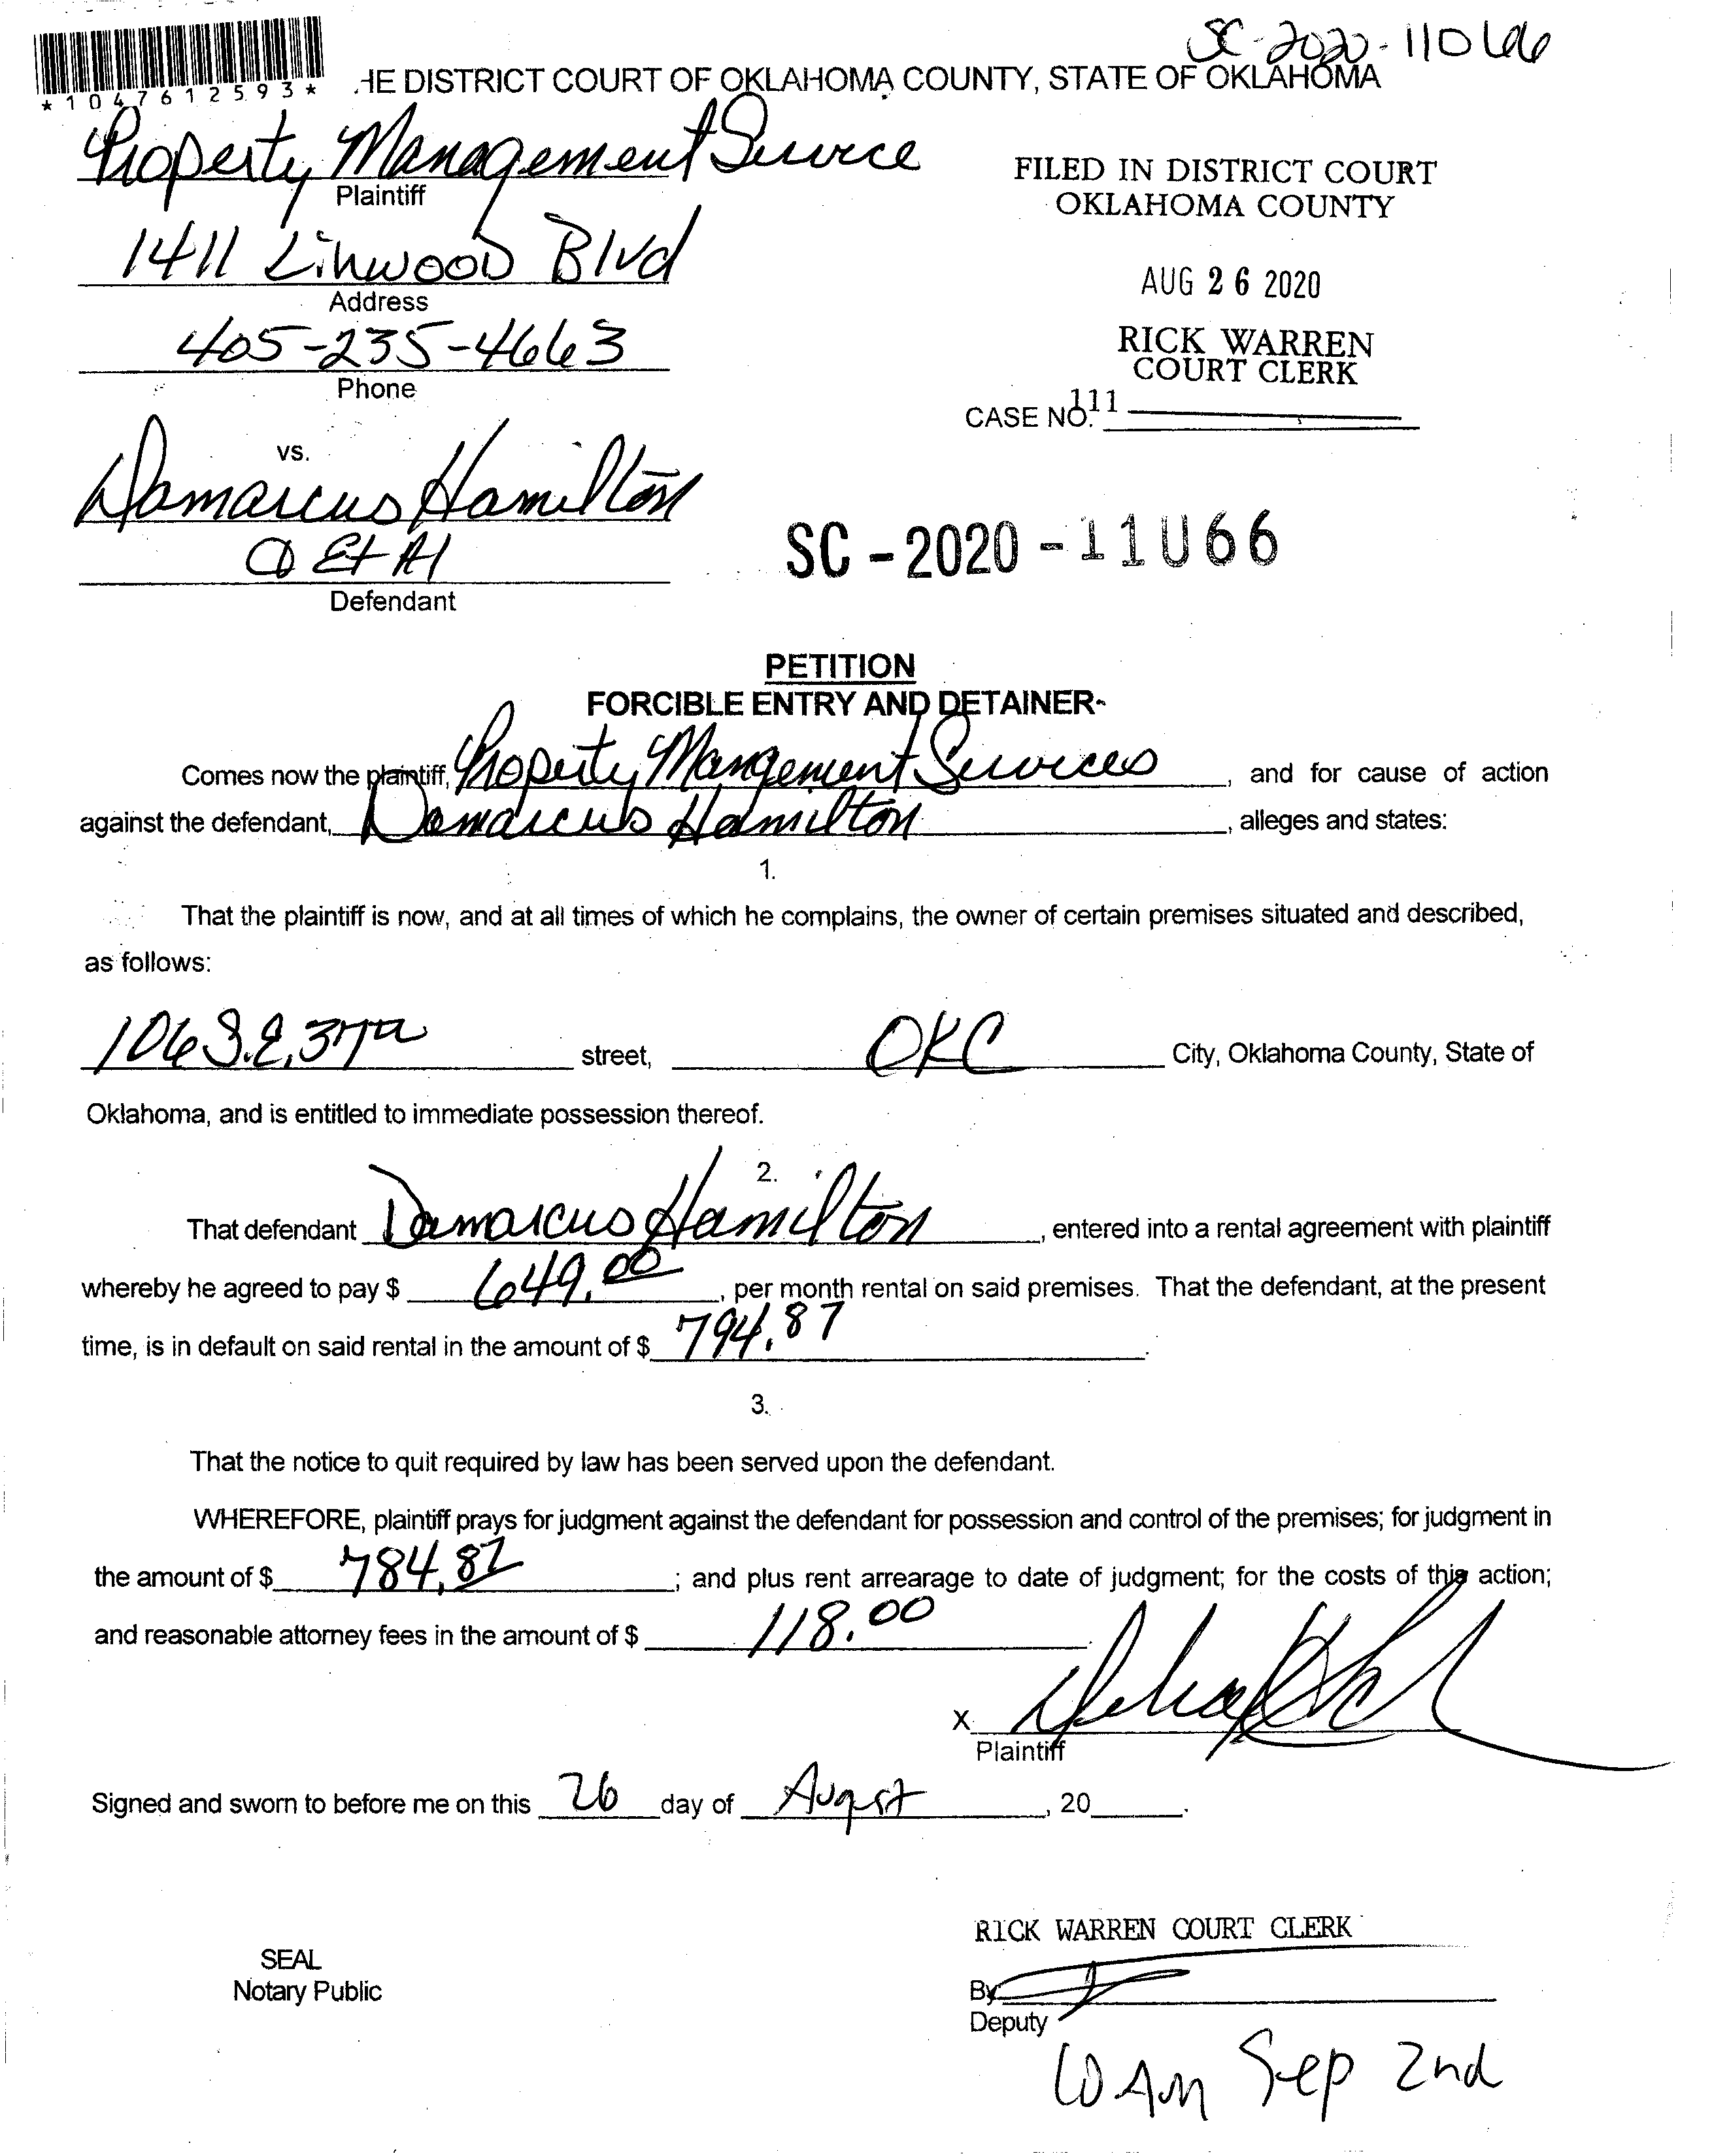 SC-2020-11066
*1047612593*
HE DISTRICT COURT OF OKLAHOMA COUNTY, STATE OF OKLAHOMA
Property Management Service
Plaintiff
FILED IN DISTRICT COURT
OKLAHOMA COUNTY
1411 Linwood Blvd
Address
AUG 26 2020
405-235-4663
Phone
RICK WARREN
COURT CLERK
CASE NO. 111
vs.
Damarcus Hamilton
Et Al
Defendant
SC-2020-11066
PETITION
FORCIBLE ENTRY AND DETAINER
Comes now the plaintiff, Property Mangement Services, and for cause of action
against the defendant, Damarcus Hamilton, alleges and states:
1.
That the plaintiff is now, and at all times of which he complains, the owner of certain premises situated and described,
as follows:
106 S.E. 37th street, OKC City, Oklahoma County, State of
Oklahoma, and is entitled to immediate possession thereof.
2.
That defendant Damarcus Hamilton, entered into a rental agreement with plaintiff
whereby he agreed to pay $ 649.00, per month rental on said premises. That the defendant, at the present
time, is in default on said rental in the amount of $ 794.87.
3.
That the notice to quit required by law has been served upon the defendant.
WHEREFORE, plaintiff prays for judgment against the defendant for possession and control of the premises; for judgment in
the amount of $ 784.87; and plus rent arrearage to date of judgment; for the costs of this action;
and reasonable attorney fees in the amount of $ 118.00.
X
Plaintiff
Signed and sworn to before me on this 26 day of August, 20 .
RICK WARREN COURT CLERK
SEAL
Notary Public
By
Deputy
10 AM Sep 2nd